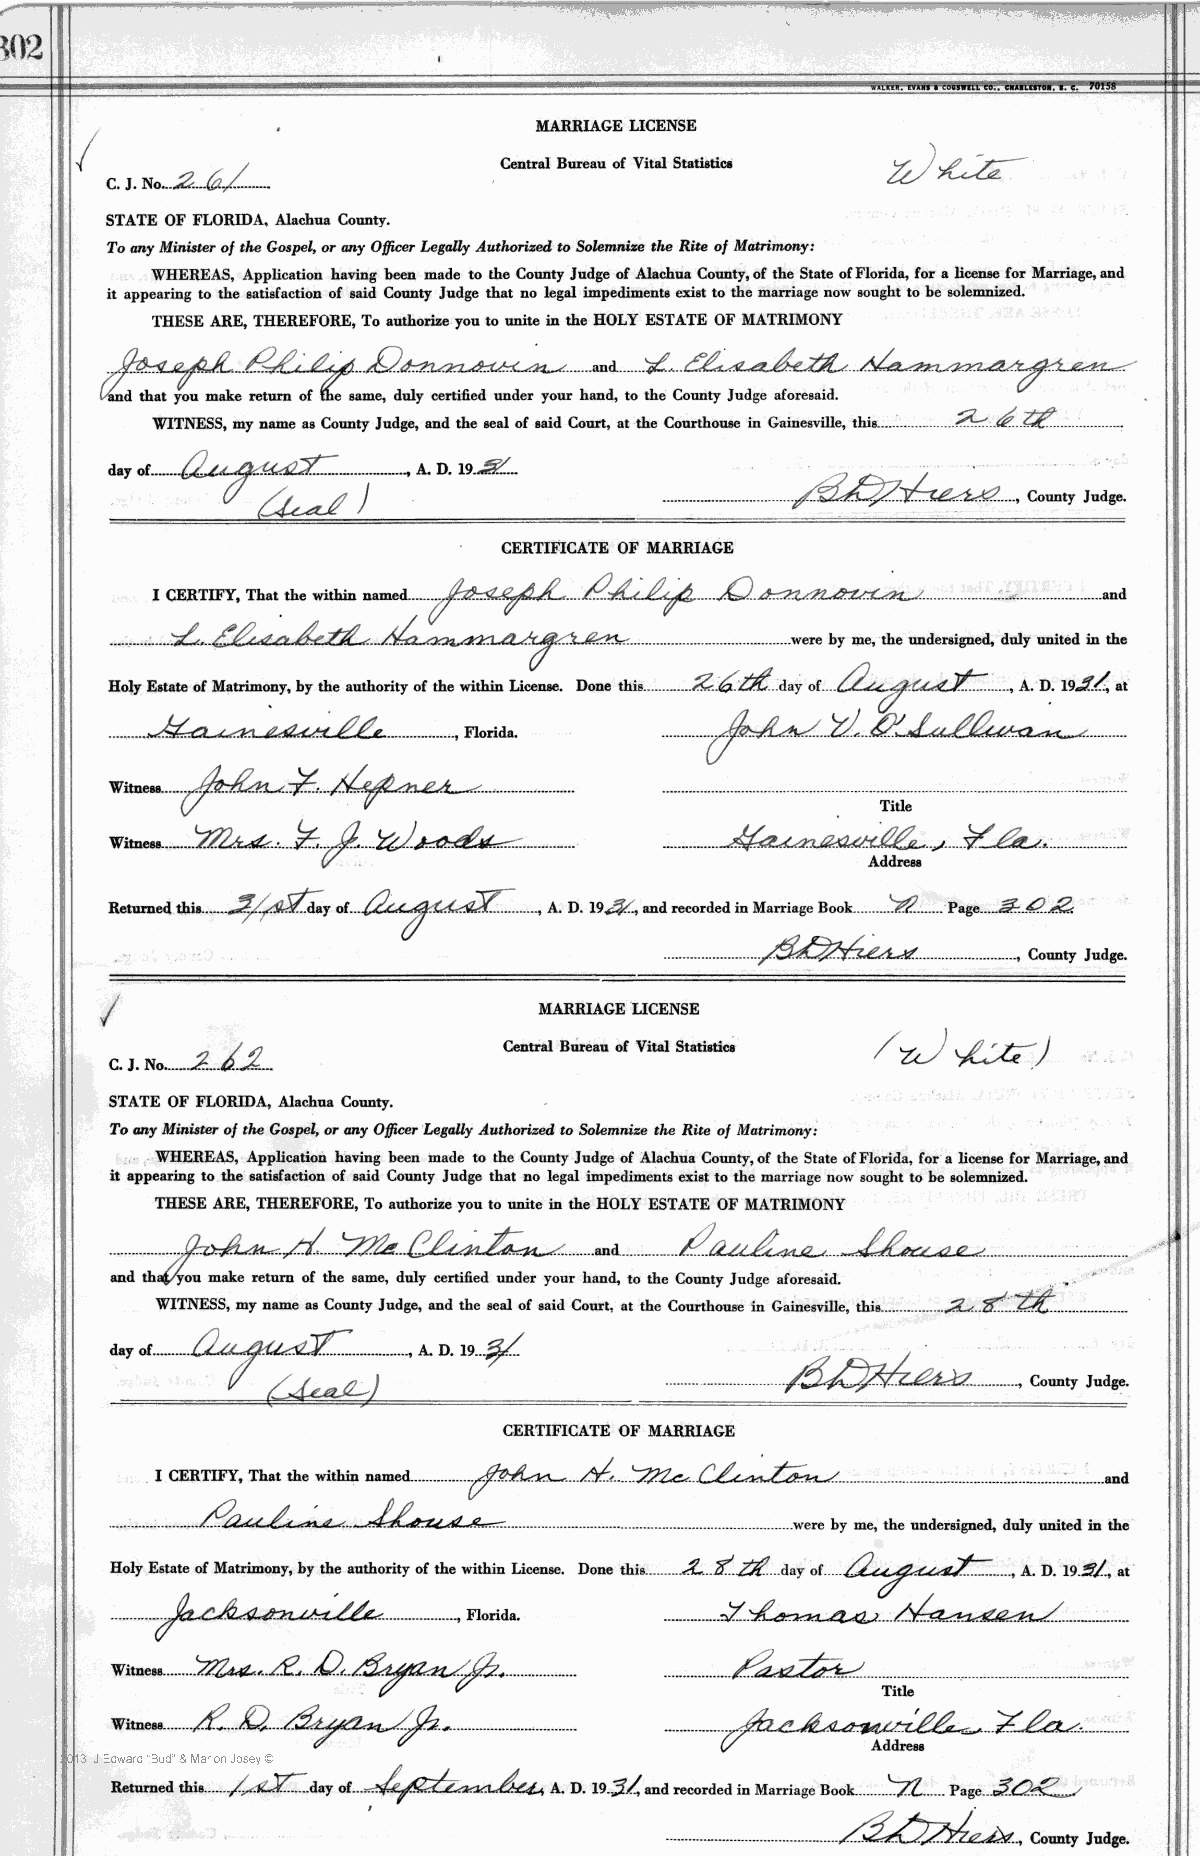 302
WALKER, EVANS & COGSWELL CO., CHARLESTON, S. C. 70158
MARRIAGE LICENSE
Central Bureau of Vital Statistics
White
C. J. No. 261
STATE OF FLORIDA, Alachua County.
To any Minister of the Gospel, or any Officer Legally Authorized to Solemnize the Rite of Matrimony:
WHEREAS, Application having been made to the County Judge of Alachua County, of the State of Florida, for a license for Marriage, and
it appearing to the satisfaction of said County Judge that no legal impediments exist to the marriage now sought to be solemnized.
THESE ARE, THEREFORE, To authorize you to unite in the HOLY ESTATE OF MATRIMONY
Joseph Philip Donnovin and L. Elisabeth Hammargren
and that you make return of the same, duly certified under your hand, to the County Judge aforesaid.
WITNESS, my name as County Judge, and the seal of said Court, at the Courthouse in Gainesville, this 26th
day of August, A. D. 1931
(Seal) BDHiers, County Judge.
CERTIFICATE OF MARRIAGE
I CERTIFY, That the within named Joseph Philip Donnovin and
L. Elisabeth Hammargren were by me, the undersigned, duly united in the
Holy Estate of Matrimony, by the authority of the within License. Done this 26th day of August, A. D. 1931, at
Gainesville, Florida. John V. O'Sullivan
Witness John F. Hepner
Title
Witness Mrs. F. J. Woods Gainesville, Fla.
Address
Returned this 31st day of August, A. D. 1931, and recorded in Marriage Book N Page 302
BDHiers, County Judge.
MARRIAGE LICENSE
Central Bureau of Vital Statistics
(White)
C. J. No. 262
STATE OF FLORIDA, Alachua County.
To any Minister of the Gospel, or any Officer Legally Authorized to Solemnize the Rite of Matrimony:
WHEREAS, Application having been made to the County Judge of Alachua County, of the State of Florida, for a license for Marriage, and
it appearing to the satisfaction of said County Judge that no legal impediments exist to the marriage now sought to be solemnized.
THESE ARE, THEREFORE, To authorize you to unite in the HOLY ESTATE OF MATRIMONY
John H. McClinton and Pauline Shouse
and that you make return of the same, duly certified under your hand, to the County Judge aforesaid.
WITNESS, my name as County Judge, and the seal of said Court, at the Courthouse in Gainesville, this 28th
day of August, A. D. 1931
(Seal) BDHiers, County Judge.
CERTIFICATE OF MARRIAGE
I CERTIFY, That the within named John H. McClinton and
Pauline Shouse were by me, the undersigned, duly united in the
Holy Estate of Matrimony, by the authority of the within License. Done this 28th day of August, A. D. 1931, at
Jacksonville, Florida. Thomas Hansen
Witness Mrs. R. D. Bryan Jr. Pastor
Title
Witness R. D. Bryan Jr. Jacksonville, Fla.
Address
2013 J Edward "Bud" & Marion Josey ©
Returned this 1st day of September, A. D. 1931, and recorded in Marriage Book N Page 302
BDHiers, County Judge.